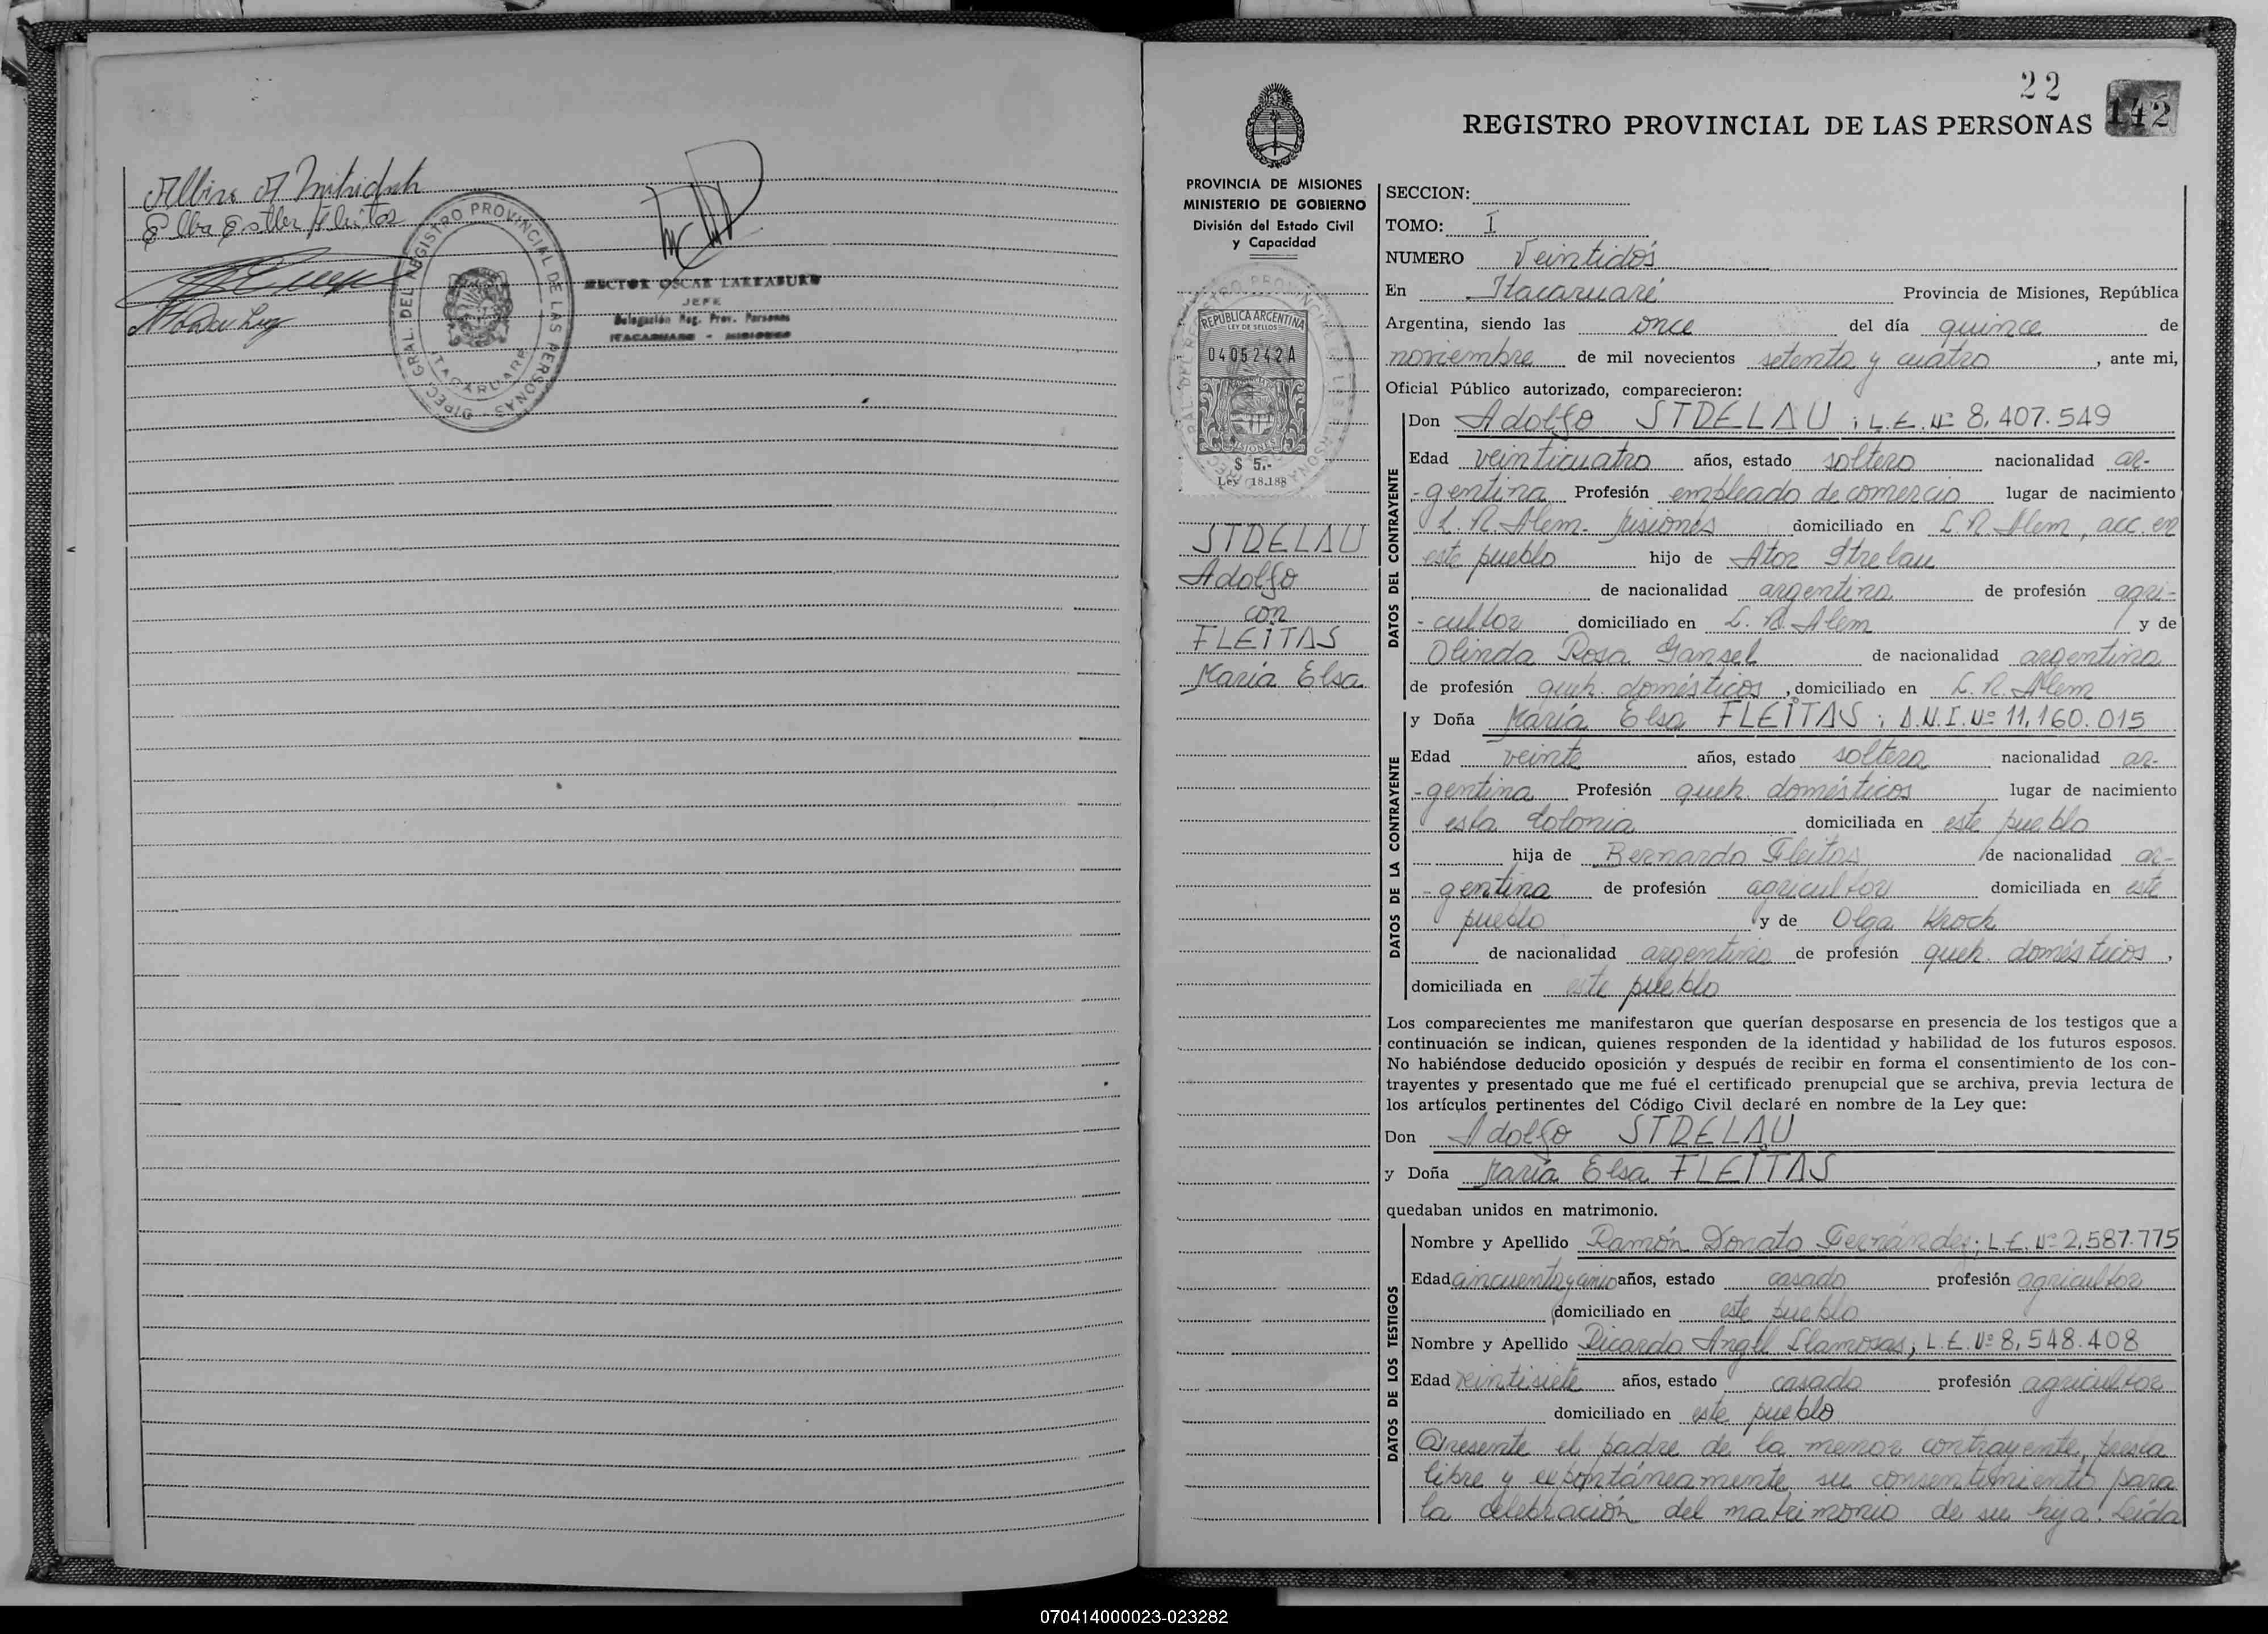 Elba Ester Fleitas
DIREC. GRAL. DEL REGISTRO PROVINCIAL DE LAS PERSONAS
ITACARUARE
HECTOR OSCAR LARRABURU
JEFE
Delegación Reg. Prov. Personas
ITACARUARE - MISIONES
22
142
REGISTRO PROVINCIAL DE LAS PERSONAS
PROVINCIA DE MISIONES
MINISTERIO DE GOBIERNO
División del Estado Civil
y Capacidad
REPUBLICA ARGENTINA
LEY DE SELLOS
0405242A
MISIONES
$ 5.-
Ley 18.188
STRELAU
Adolfo
con
FLEITAS
María Elsa
SECCION:
TOMO: I
NUMERO Veintidós
En Itacaruaré Provincia de Misiones, República
Argentina, siendo las once del día quince de
noviembre de mil novecientos setenta y cuatro, ante mi,
Oficial Público autorizado, comparecieron:
DATOS DEL CONTRAYENTE
Don Adolfo STRELAU; L.E. Nº 8,407.549
Edad veinticuatro años, estado soltero nacionalidad ar-
-gentina Profesión empleado de comercio lugar de nacimiento
L. N. Alem- Misiones domiciliado en L. N. Alem, acc. en
este pueblo hijo de Ator Strelau
de nacionalidad argentina de profesión agri-
-cultor domiciliado en L. N. Alem y de
Olinda Rosa Gansel de nacionalidad argentina
de profesión queh. domésticos, domiciliado en L. N. Alem
DATOS DE LA CONTRAYENTE
y Doña María Elsa FLEITAS; D.N.I. Nº 11,160.015
Edad veinte años, estado soltera nacionalidad ar-
-gentina Profesión queh. domésticos lugar de nacimiento
esta Colonia domiciliada en este pueblo
hija de Bernardo Fleitas de nacionalidad ar-
-gentina de profesión agricultor domiciliada en este
pueblo y de Olga Kroch
de nacionalidad argentina de profesión queh. domésticos,
domiciliada en este pueblo
Los comparecientes me manifestaron que querían desposarse en presencia de los testigos que a
continuación se indican, quienes responden de la identidad y habilidad de los futuros esposos.
No habiéndose deducido oposición y después de recibir en forma el consentimiento de los con-
trayentes y presentado que me fué el certificado prenupcial que se archiva, previa lectura de
los artículos pertinentes del Código Civil declaré en nombre de la Ley que:
Don Adolfo STRELAU
y Doña María Elsa FLEITAS
quedaban unidos en matrimonio.
DATOS DE LOS TESTIGOS
Nombre y Apellido Ramón Donato Fernández; L.E. Nº 2,587.775
Edad cincuenta y cinco años, estado casado profesión agricultor
domiciliado en este pueblo
Nombre y Apellido Ricardo Angel Llamosas; L.E. Nº 8,548.408
Edad veintisiete años, estado casado profesión agricultor
domiciliado en este pueblo
Presente el padre de la menor contrayente, presta
libre y expontáneamente su consentimiento para
la celebración del matrimonio de su hija. Leída
070414000023-023282